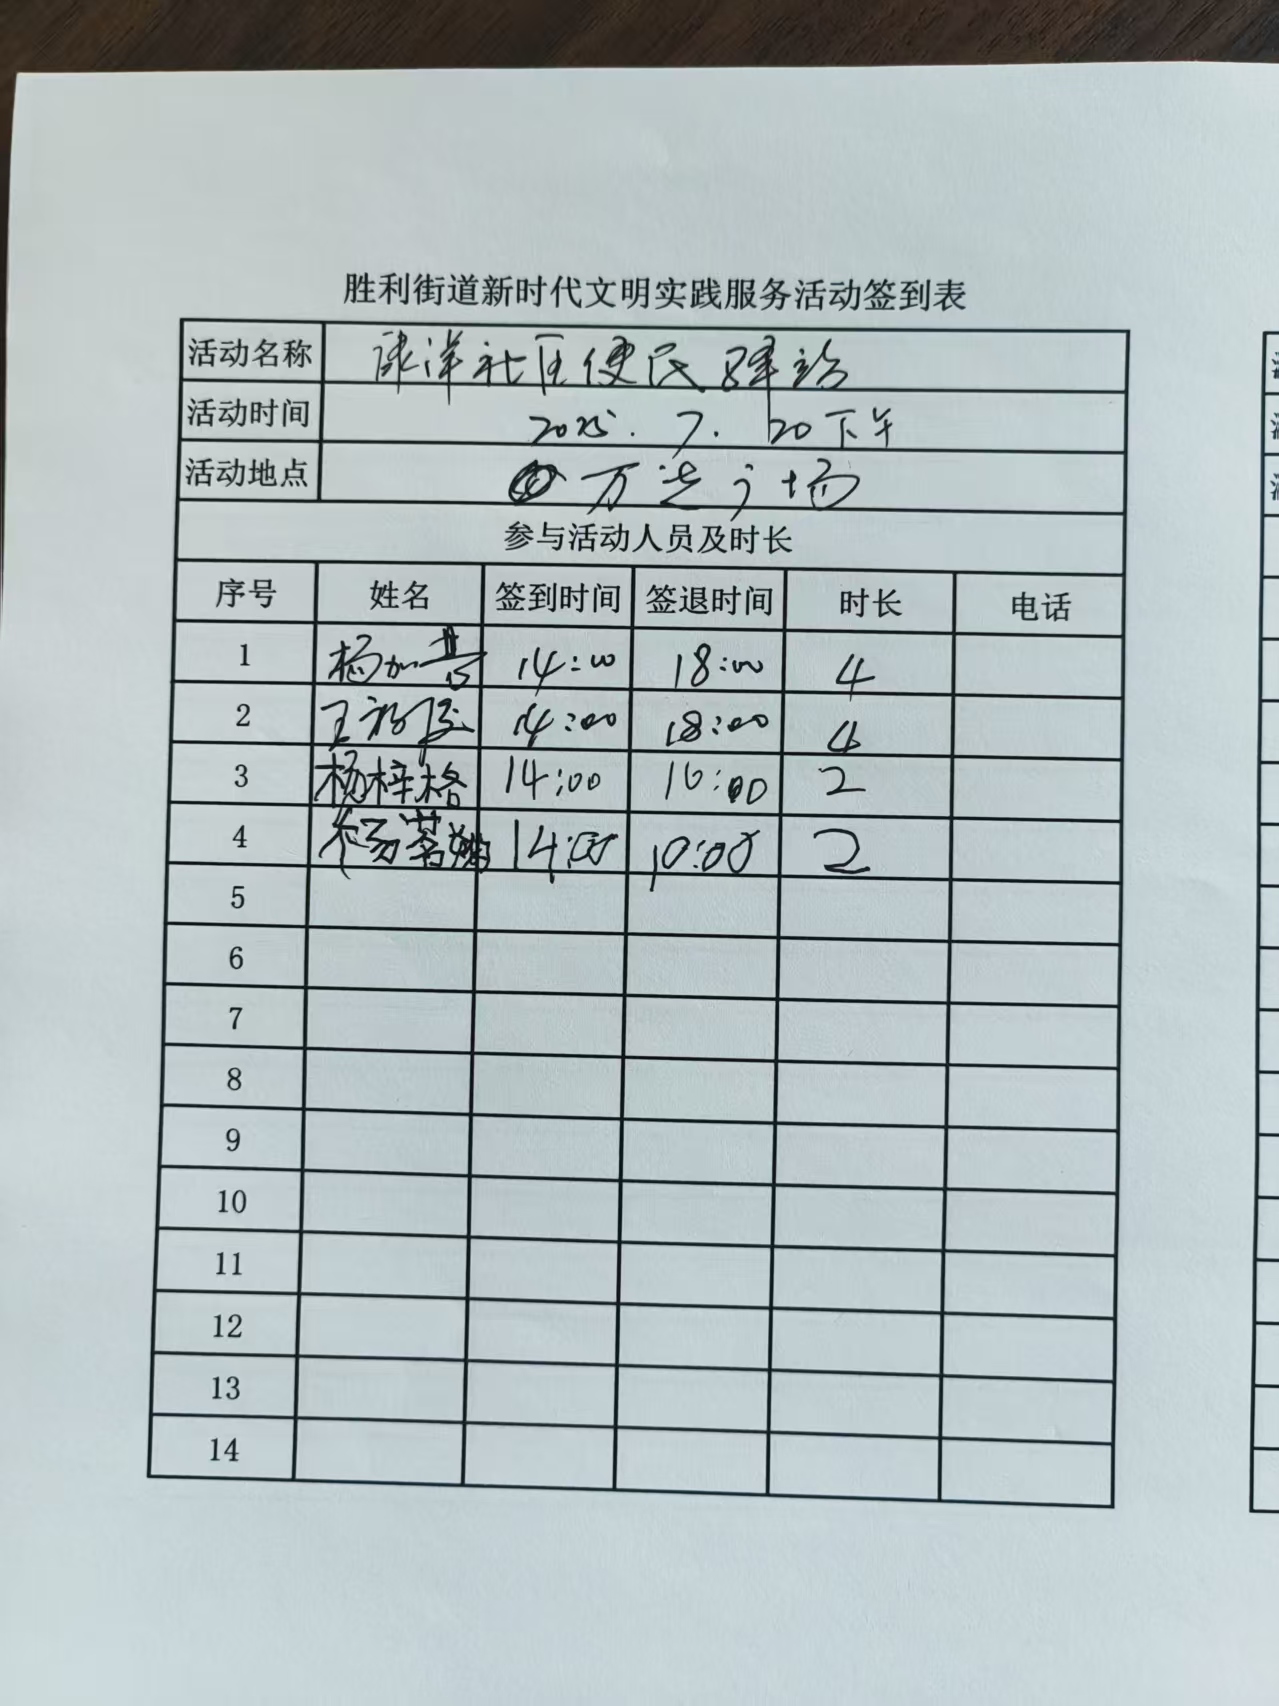 胜利街道新时代文明实践服务活动签到表
活动名称 洋社区便民驿站
活动时间 2025.7.20下午
活动地点 万达广场
参与活动人员及时长
序号 姓名 签到时间 签退时间 时长 电话
1 杨加 14:00 18:00 4
2 王 14:00 18:00 4
3 杨梓格 14:00 16:00 2
4 杨茗 14:00 16:00 2
5
6
7
8
9
10
11
12
13
14